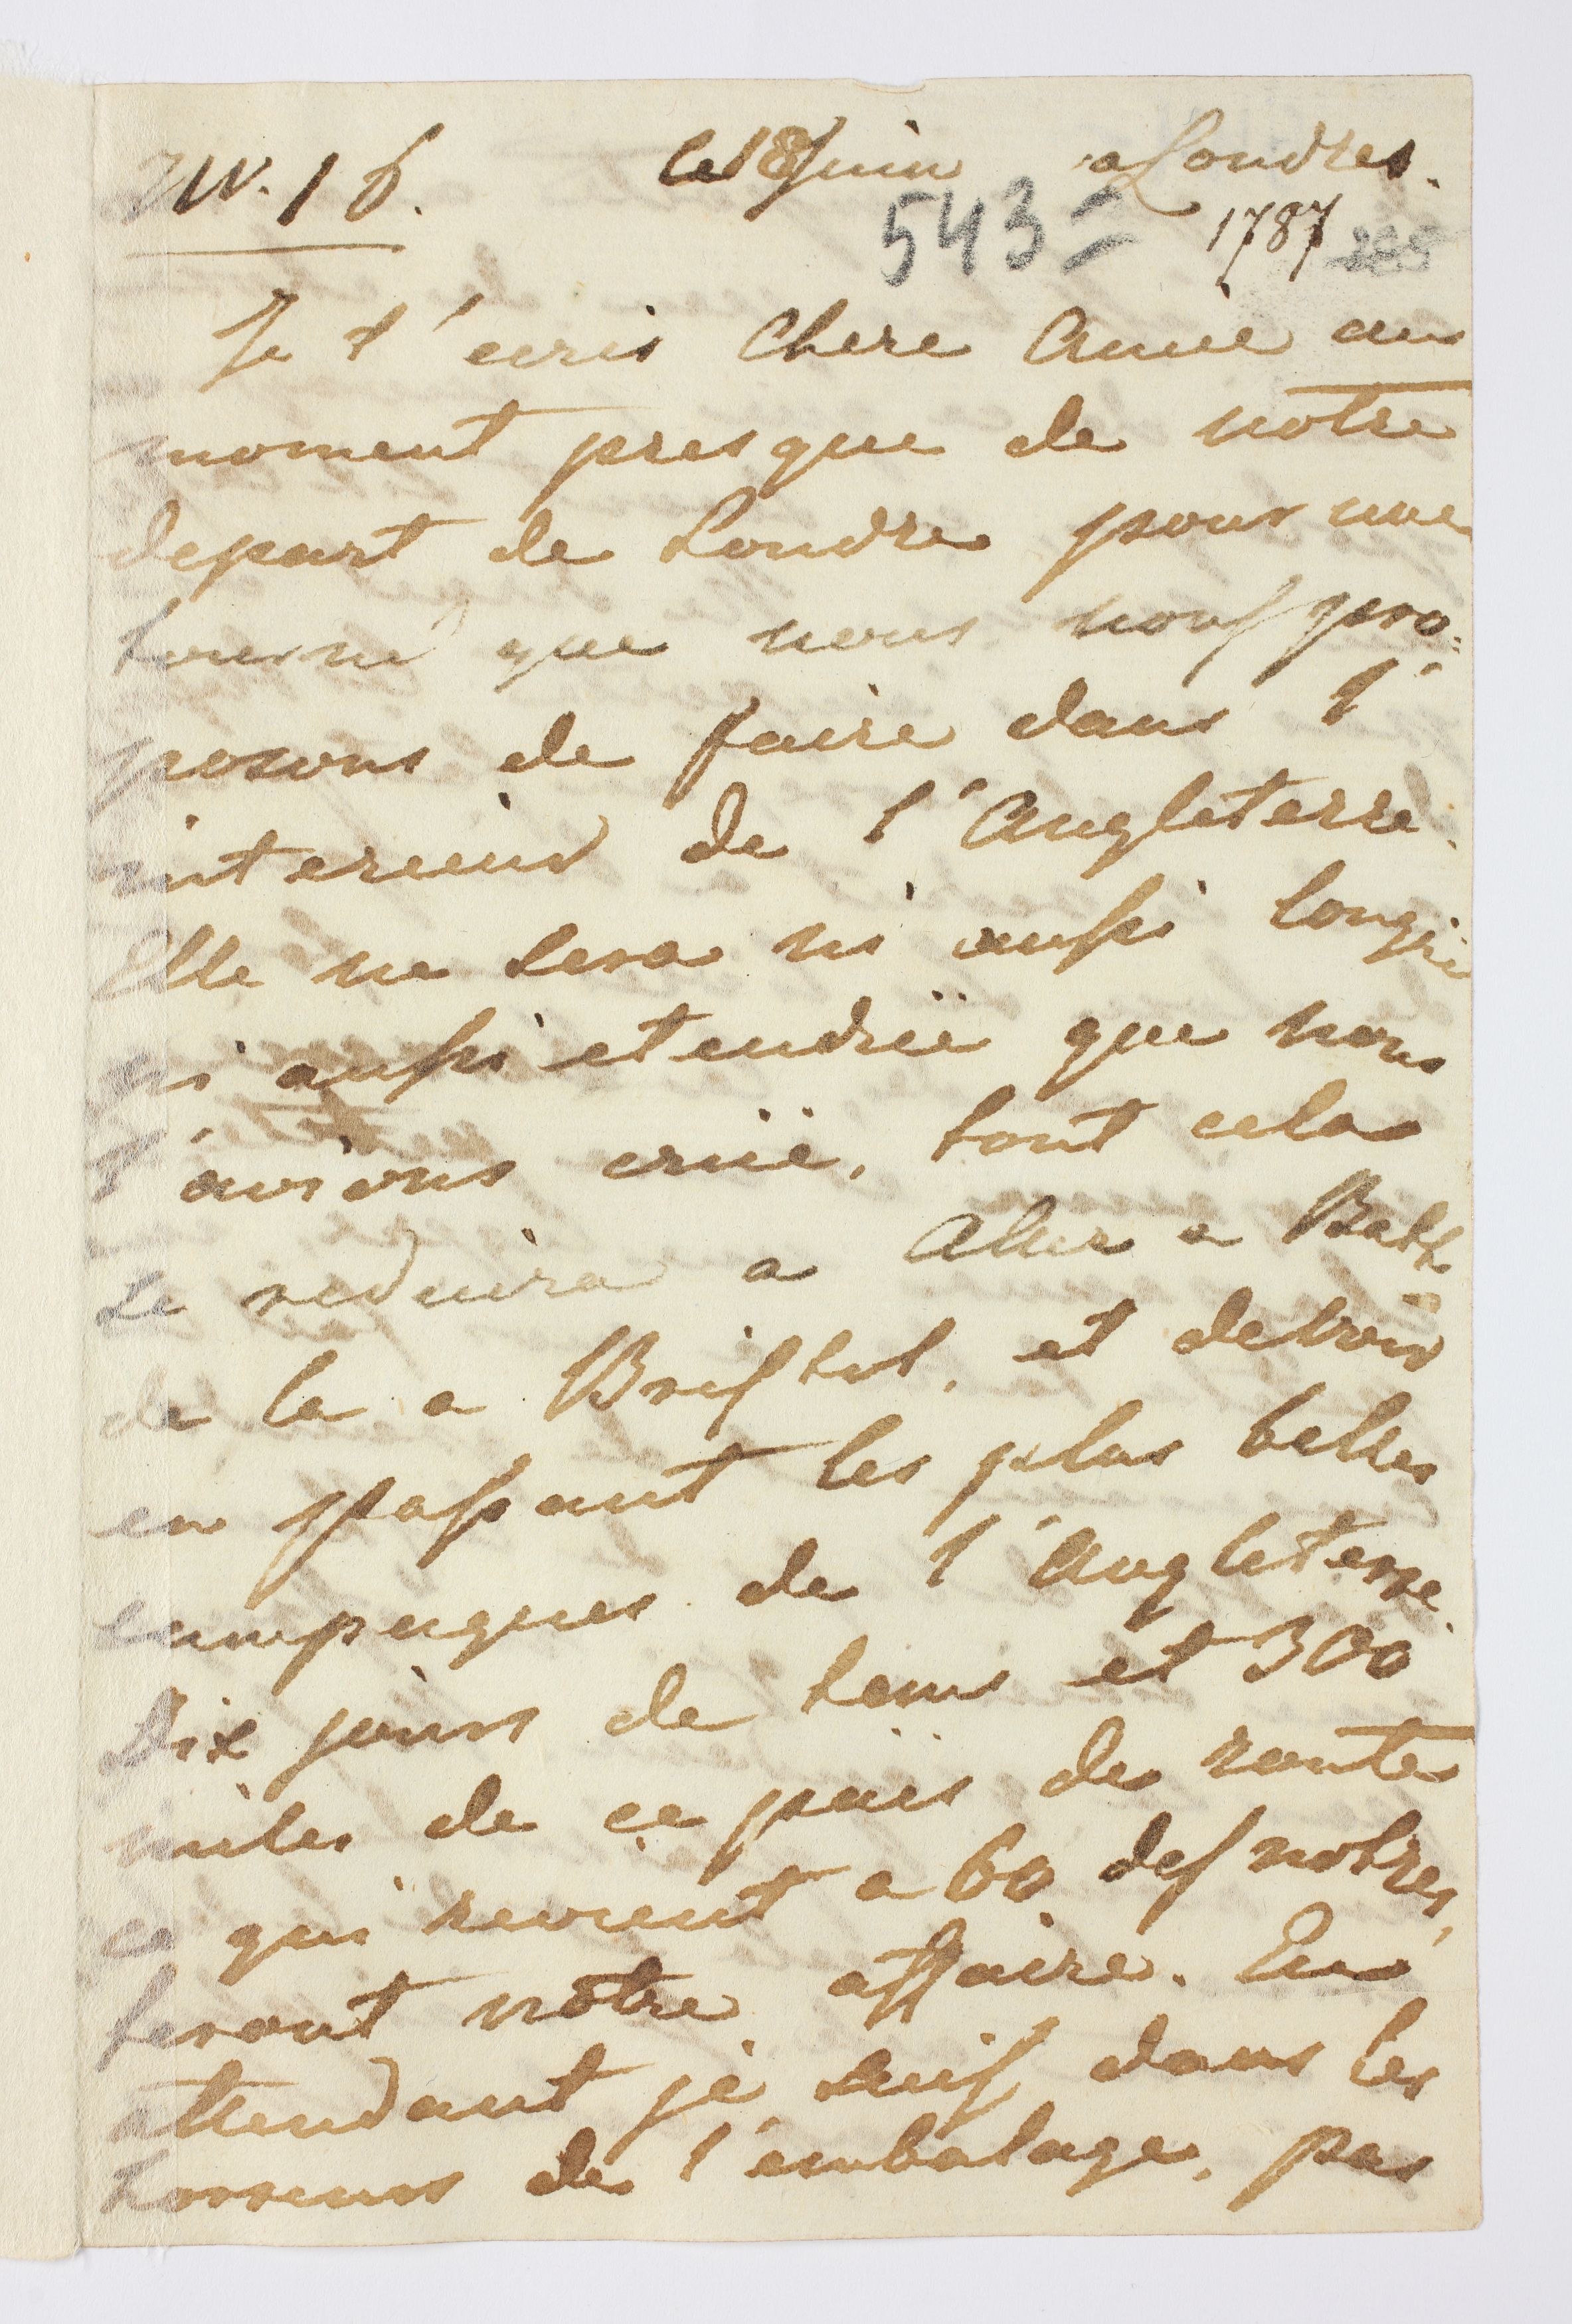 N. 16. le 18 Juin a Londres.
543 = 1787
Je t'ecris Chere Amie au
moment presque de notre
depart de Londre pour une
tourné que nous nous pro=
posons de faire dans l'
interieur de l'Angleterre.
Elle ne sera ni aussi longue
ni aussi etendrëe que nous
l'avions crüe, tout cela
se reduira a Aller a Bath
de la a Bristol, et de voir
en passant les plus belles
campagnes de l'Angleterre.
Dix jours de tems et 300
miles de ce païs de route
ce qui revient a 60 des notres,
feront nôtre affaire. En
attendant je suis dans les
horreurs de l'embalage, pas